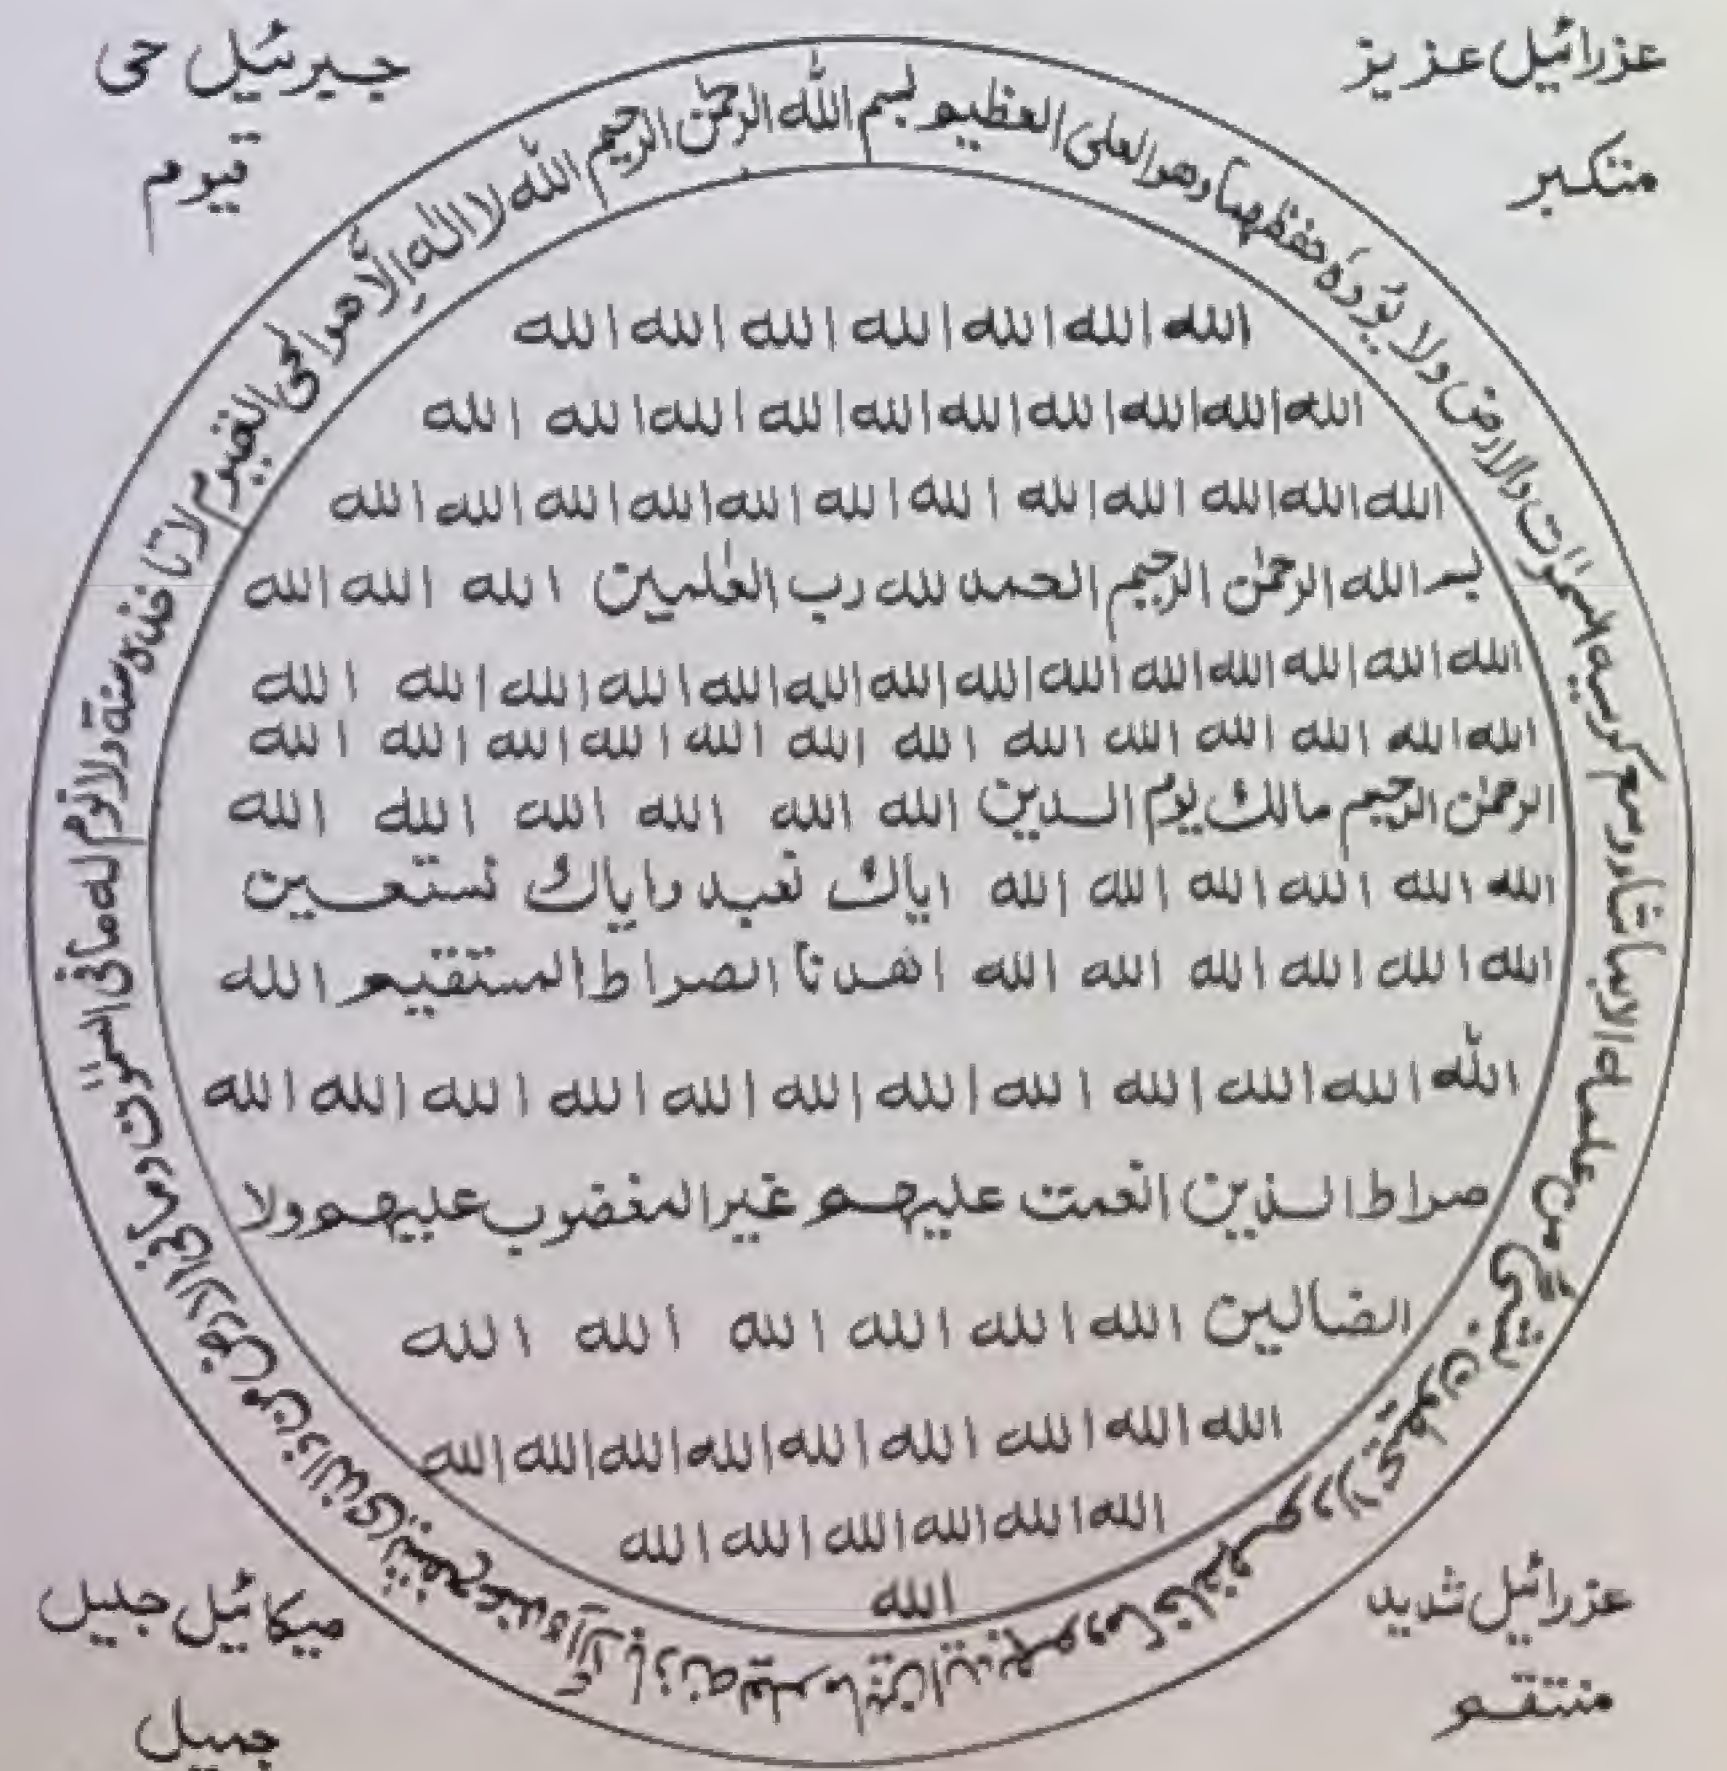 عزرائیل عزیز
متکبر
جبرئیل حی
قیوم
بسم الله الرحمٰن الرحیم الله لا اله اِلَّا هو الحی القیوم لا تا خذہ سنة ولا نوم له ما فی السمٰوٰت وما فی الارض من ذالذی یشفع عندہ اِلَّا باذنه یعلم ما بین ایدیهم وما خلفهم ولا یحیطون بشیءٍ من علمه الا بما شاء وسع کرسیه السمٰوٰت والارض ولا یؤدہ حفظهما وهو العلی العظیم
الله الله الله الله الله الله الله
الله الله الله الله الله الله الله الله الله الله
الله الله الله الله الله الله الله الله الله الله الله الله
بسم الله الرحمٰن الرحیم الحمد لله رب العٰلمین الله الله الله
الله الله الله الله الله الله الله الله الله الله الله الله الله الله
الله الله الله الله الله الله الله الله الله الله الله الله الله
الرحمٰن الرحیم مالك یوم الدین الله الله الله الله الله الله
الله الله الله الله الله الله ایاك نعبد وایاك نستعین
الله الله الله الله الله الله اهدنا الصراط المستقیم الله
الله الله الله الله الله الله الله الله الله الله الله الله
صراط الذین انعمت علیهم غیر المغضوب علیهم ولا
الضالین الله الله الله الله الله الله
الله الله الله الله الله الله الله الله الله
الله الله الله الله الله الله
الله
عزرائیل شدید
منتقم
میکائیل جلیل
جمیل